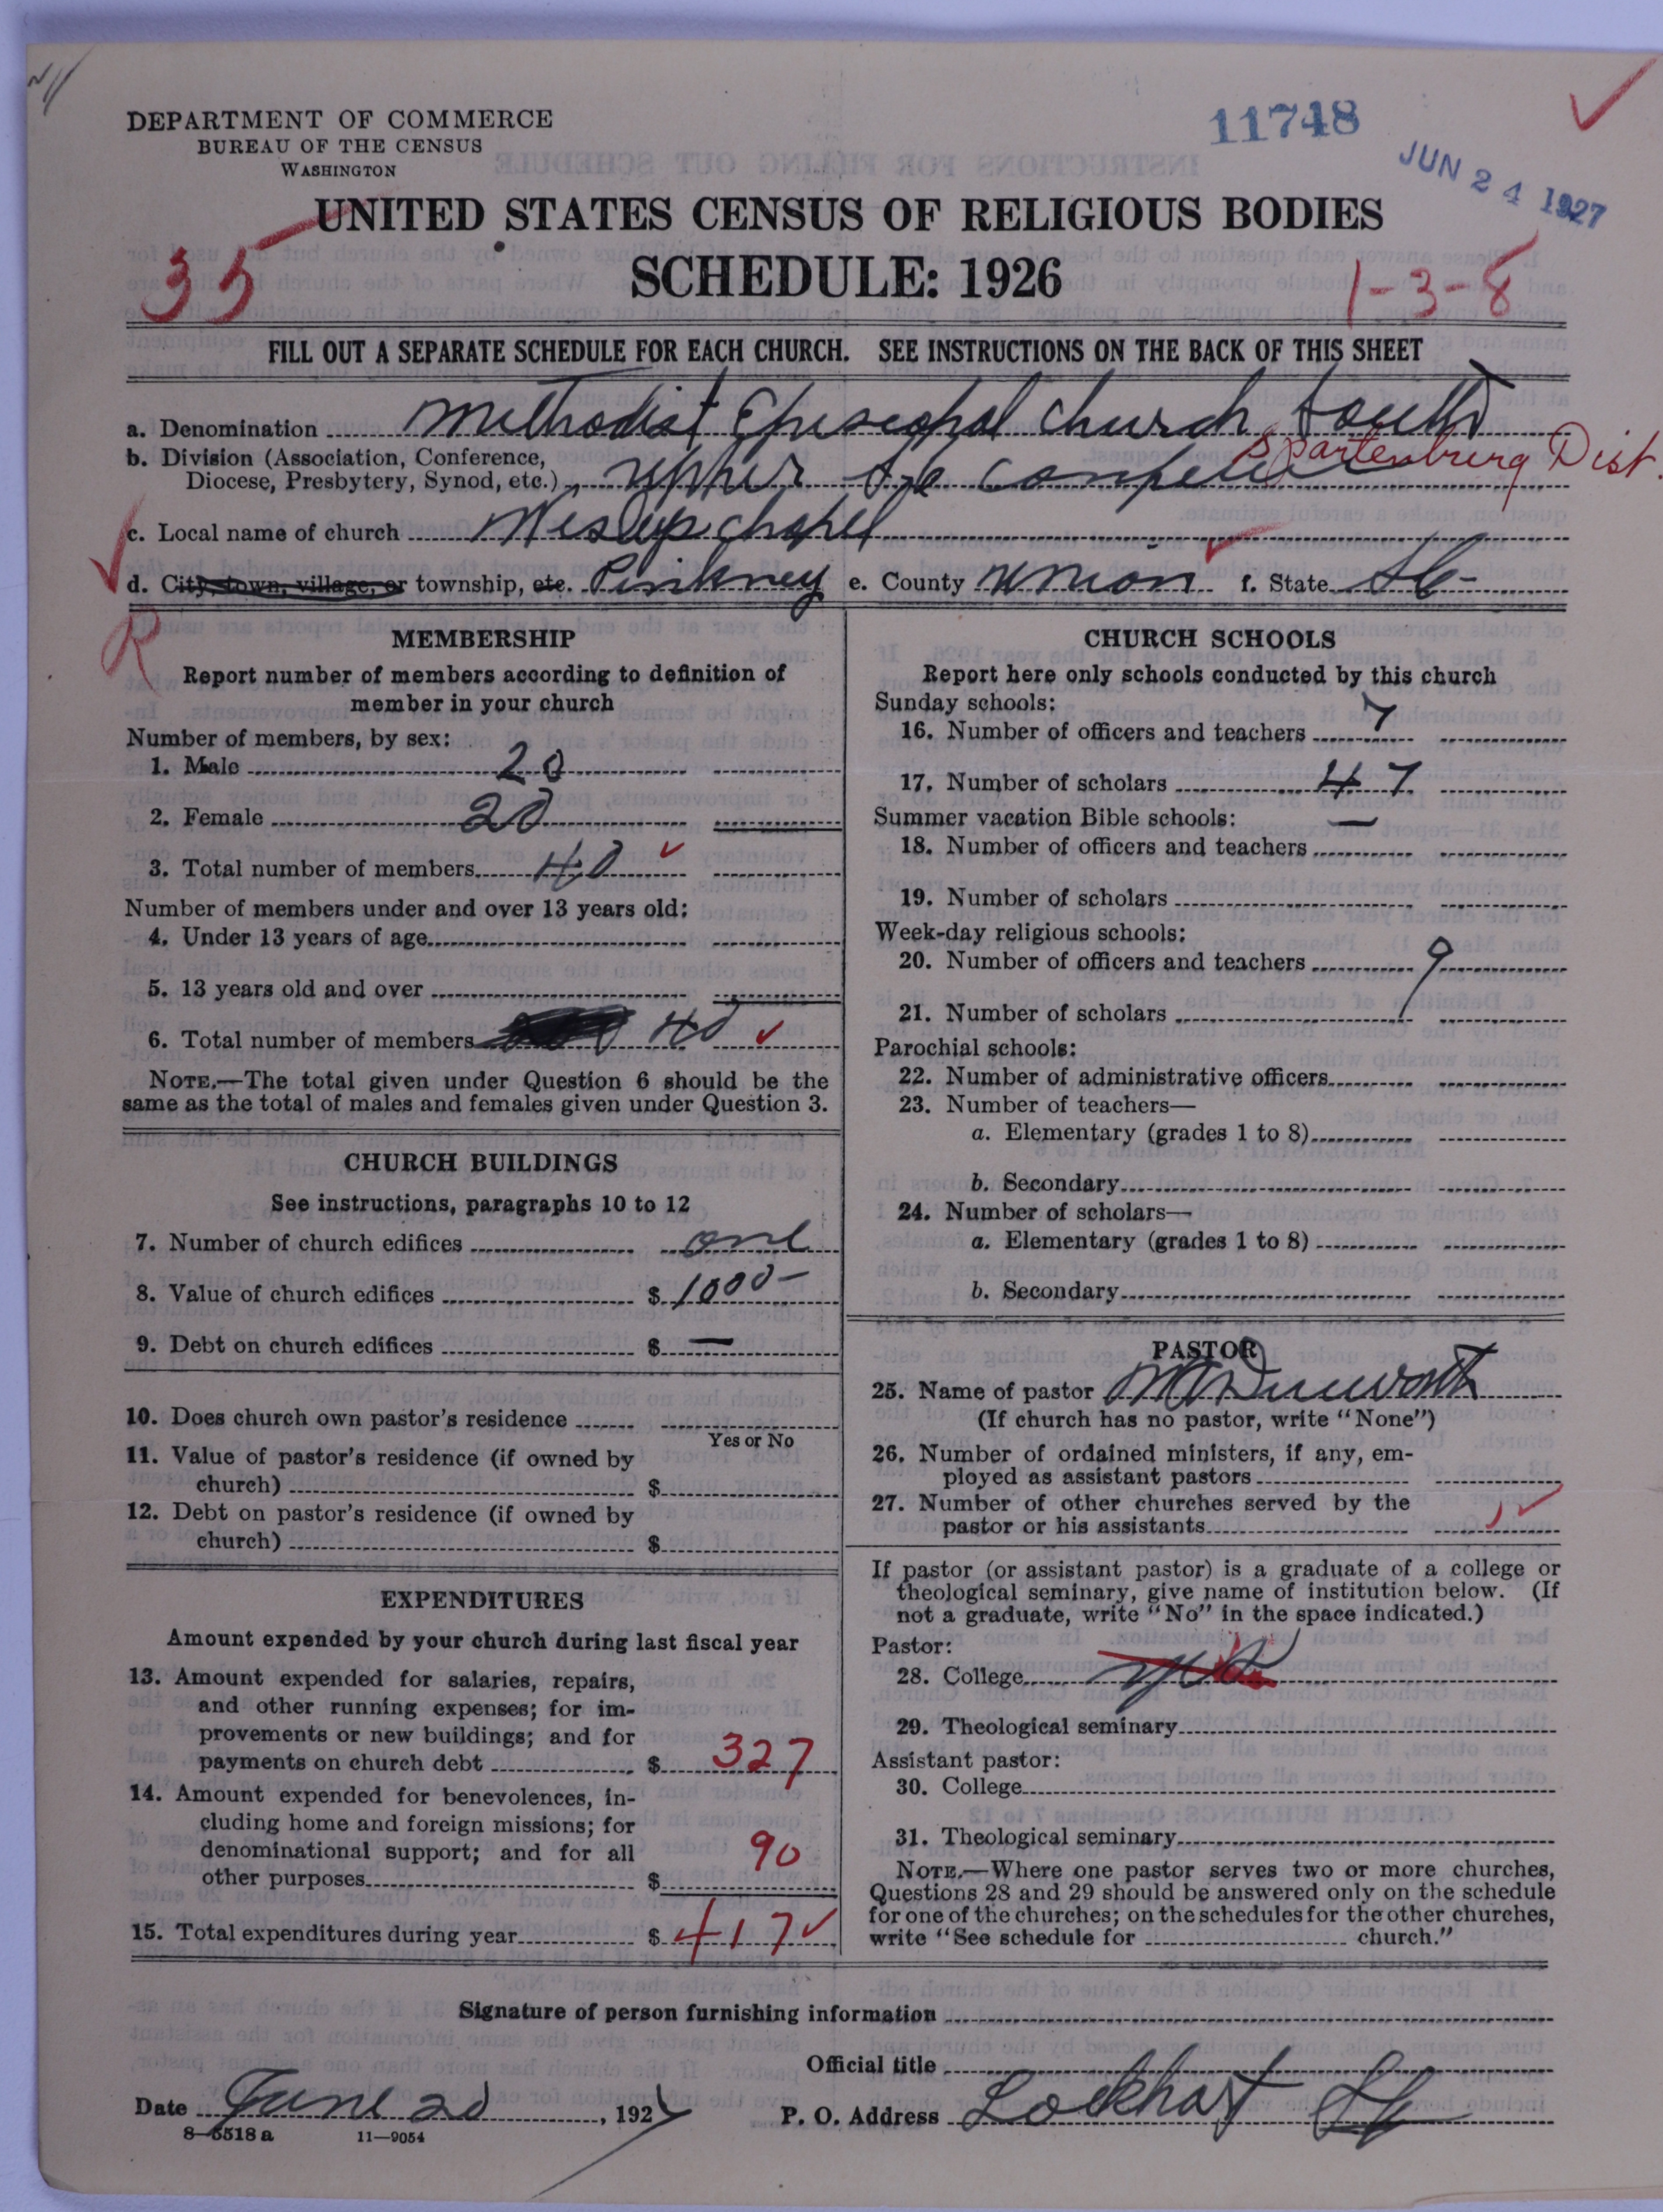 11748
JUN 24 1927
DEPARTMENT OF COMMERCE
BUREAU OF THE CENSUS
WASHINGTON
UNITED STATES CENSUS OF RELIGIOUS BODIES
SCHEDULE: 1926
35
1-3-8
FILL OUT A SEPARATE SCHEDULE FOR EACH CHURCH. SEE INSTRUCTIONS ON THE BACK OF THIS SHEET
a. Denomination Methodist Episcopal Church South
b. Division (Association, Conference,
Diocese, Presbytery, Synod, etc.) upper SC Spartenburg Dist.
c. Local name of church chapel
d. City, town, village, or township, etc. Pinkney e. County Union f. State SC
R
MEMBERSHIP
Report number of members according to definition of
member in your church
Number of members, by sex:
1. Male 20
2. Female 20
3. Total number of members 40
Number of members under and over 13 years old:
4. Under 13 years of age
5. 13 years old and over
6. Total number of members 40
NOTE.—The total given under Question 6 should be the
same as the total of males and females given under Question 3.
CHURCH BUILDINGS
See instructions, paragraphs 10 to 12
7. Number of church edifices one
8. Value of church edifices $ 1000-
9. Debt on church edifices $ —
10. Does church own pastor's residence
Yes or No
11. Value of pastor's residence (if owned by
church) $
12. Debt on pastor's residence (if owned by
church) $
EXPENDITURES
Amount expended by your church during last fiscal year
13. Amount expended for salaries, repairs,
and other running expenses; for im-
provements or new buildings; and for
payments on church debt $ 327
14. Amount expended for benevolences, in-
cluding home and foreign missions; for
denominational support; and for all
other purposes $ 90
15. Total expenditures during year $ 417
CHURCH SCHOOLS
Report here only schools conducted by this church
Sunday schools:
16. Number of officers and teachers 7
17. Number of scholars 47
Summer vacation Bible schools: —
18. Number of officers and teachers
19. Number of scholars
Week-day religious schools:
20. Number of officers and teachers 9
21. Number of scholars
Parochial schools:
22. Number of administrative officers
23. Number of teachers—
a. Elementary (grades 1 to 8)
b. Secondary
24. Number of scholars—
a. Elementary (grades 1 to 8)
b. Secondary
PASTOR
25. Name of pastor
(If church has no pastor, write "None")
26. Number of ordained ministers, if any, em-
ployed as assistant pastors
27. Number of other churches served by the
pastor or his assistants 1
If pastor (or assistant pastor) is a graduate of a college or
theological seminary, give name of institution below. (If
not a graduate, write "No" in the space indicated.)
Pastor:
28. College
29. Theological seminary
Assistant pastor:
30. College
31. Theological seminary
NOTE.—Where one pastor serves two or more churches,
Questions 28 and 29 should be answered only on the schedule
for one of the churches; on the schedules for the other churches,
write "See schedule for church."
Signature of person furnishing information
Official title
Date June 20, 1927 P. O. Address Lockhart SC
8—5518 a 11—9054